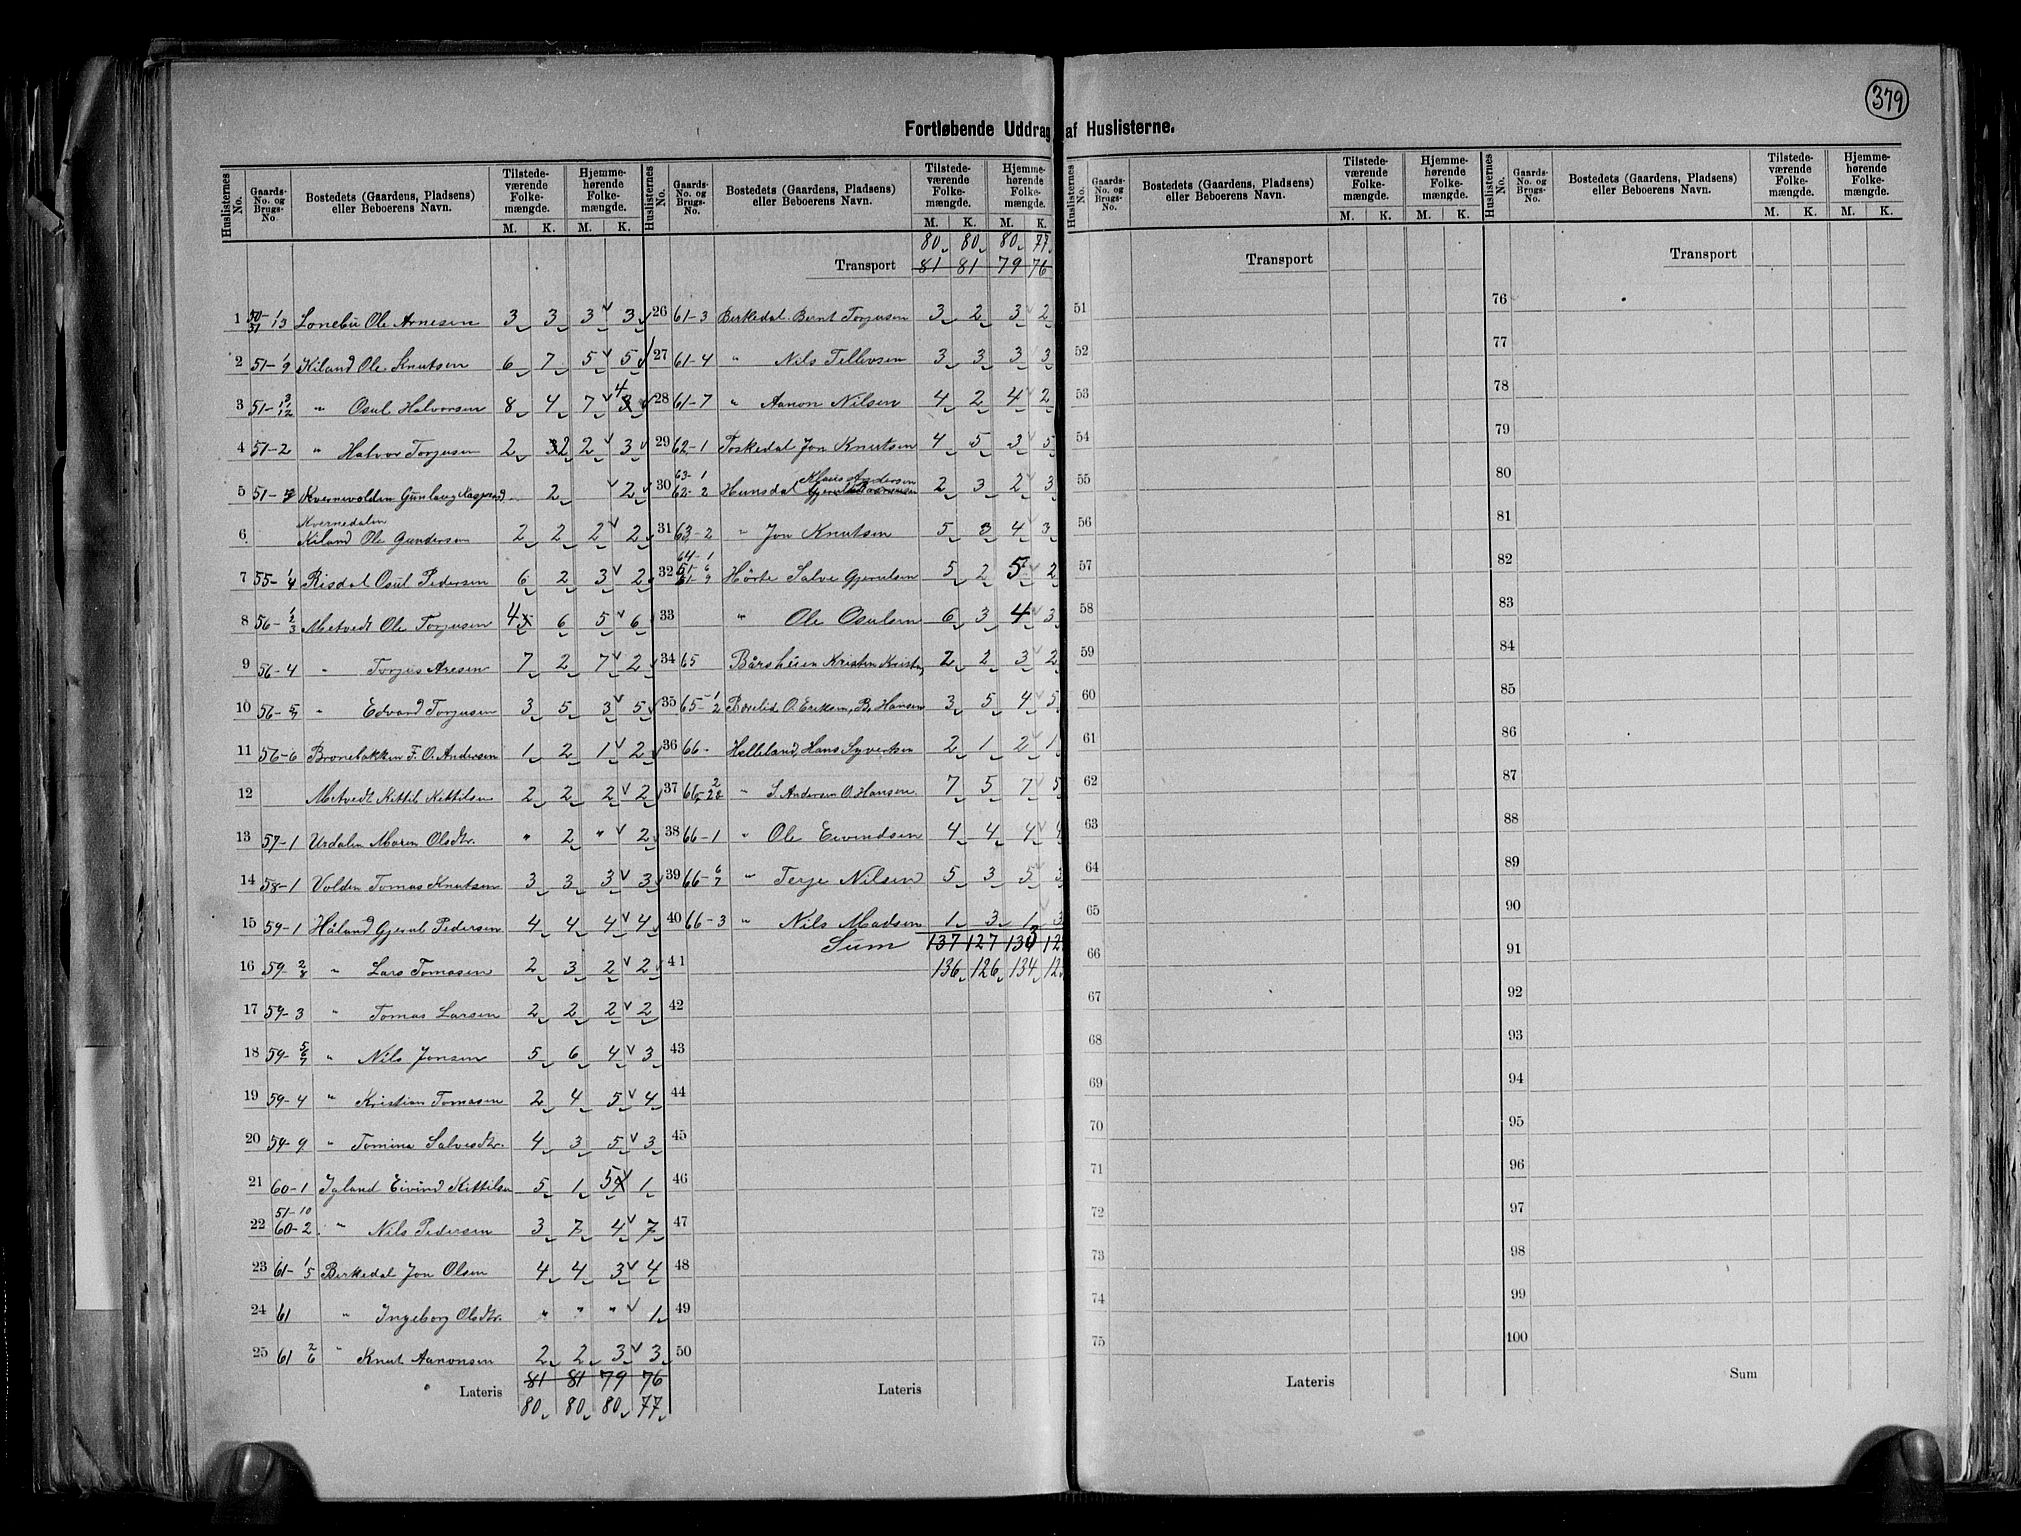 379
Fortløbende Uddrag af Huslisterne.
Huslisternes No. Gaards-No. og Brugs-No. Bostedets (Gaardens, Pladsens) eller Beboerens Navn. Tilstedeværende Folkemængde. M. K. Hjemmehørende Folkemængde. M. K.
1 50-51 1/13 Lonebu Ole Arnesen 3 3 3 3
2 51-1/9 Kiland Ole Knutsen 6 7 5 5
3 51-3/12 " Osul Halvorsen 8 4 7 4
4 51-2 " Halvor Torjusen 2 2 2 3
5 51- Kvernevolden Gunlaug 2 2
6 Kvernedalen
Kiland Ole Gundersen 2 2 2 2
7 55-1/4 Risdal Osul Pedersen 6 2 3 2
8 56-2/3 Metvedt Ole Torjusen 4 6 5 6
9 56-4 " Torjus Aresen 7 2 7 2
10 56-5/7 " Edvard Torjusen 3 5 3 5
11 56-6 Bronebakken F. O. Andersen 1 2 1 2
12 Metvedt Kittil Kittilsen 2 2 2 2
13 57-1 Urdalen Maren Olsdtr. " 2 " 2
14 58-1 Volden Tomas Knutsen 3 3 3 3
15 59-1 Håland Gjerul Pedersen 4 4 4 4
16 59-2/8 " Lars Tomasen 2 3 2 2
17 59-3 " Tomas Larsen 2 2 2 2
18 59-5/6/7 " Nils Jonsen 5 6 4 3
19 59-4 " Kristian Tomasen 2 4 5 4
20 59-9 " Tomine Salvesdtr. 4 3 5 3
21 60-1 Igland Eivind Kittilsen 5 1 5 1
22 51-10 60-2 " Nils Pedersen 3 7 4 7
23 61-1/5 Birkedal Jon Olsen 4 4 3 4
24 61 " Ingeborg Olsdtr. " " " 1
25 61 2/6 " Knut Aanonsen 2 2 3 3
81 81 79 76
Lateris 80 80 80 77
Huslisternes No. Gaards-No. og Brugs-No. Bostedets (Gaardens, Pladsens) eller Beboerens Navn. Tilstedeværende Folkemængde. M. K. Hjemmehørende Folkemængde. M. K.
80 80 80 77
Transport 81 81 79 76
26 61-3 Birkedal Bernt Torjusen 3 2 3 2
27 61-4 " Nils Tellevsen 3 3 3 3
28 61-7 " Aanon Nilsen 4 2 4 2
29 62-1 Toskedal Jon Knutsen 4 5 3 5
30 63-1 62-2 Hunsdal Andersen 2 3 2 3
31 63-2 " Jon Knutsen 5 3 4 3
32 64-1 51-6 61-9 Hörte Salve Gjerulsen 5 2 5 2
33 " Ole Osulsen 6 3 4 3
34 65 Bårshuen Kristen 2 2 3 2
35 65-1/2 Borelid O. Eriksen, B. Hansen 3 5 4 5
36 66- Helleland, Hans Syvertsen 2 1 2 1
37 66- " S. Andersen O. Hansen. 7 5 7 5
38 66-1 " Ole Eivindsen 4 4 4 4
39 66-6/7 " Terje Nilsen 5 3 5 3
40 66-3 " Nils Madsen 1 3 1 3
Sum 137 127 133 12
41 136 126 134 12
42
43
44
45
46
47
48
49
50
Lateris
Huslisternes No. Gaards-No. og Brugs-No. Bostedets (Gaardens, Pladsens) eller Beboerens Navn. Tilstedeværende Folkemængde. M. K. Hjemmehørende Folkemængde. M. K.
Transport
51
52
53
54
55
56
57
58
59
60
61
62
63
64
65
66
67
68
69
70
71
72
73
74
75
Lateris
Huslisternes No. Gaards-No. og Brugs-No. Bostedets (Gaardens, Pladsens) eller Beboerens Navn. Tilstedeværende Folkemængde. M. K. Hjemmehørende Folkemængde. M. K.
Transport
76
77
78
79
80
81
82
83
84
85
86
87
88
89
90
91
92
93
94
95
96
97
98
99
100
Sum